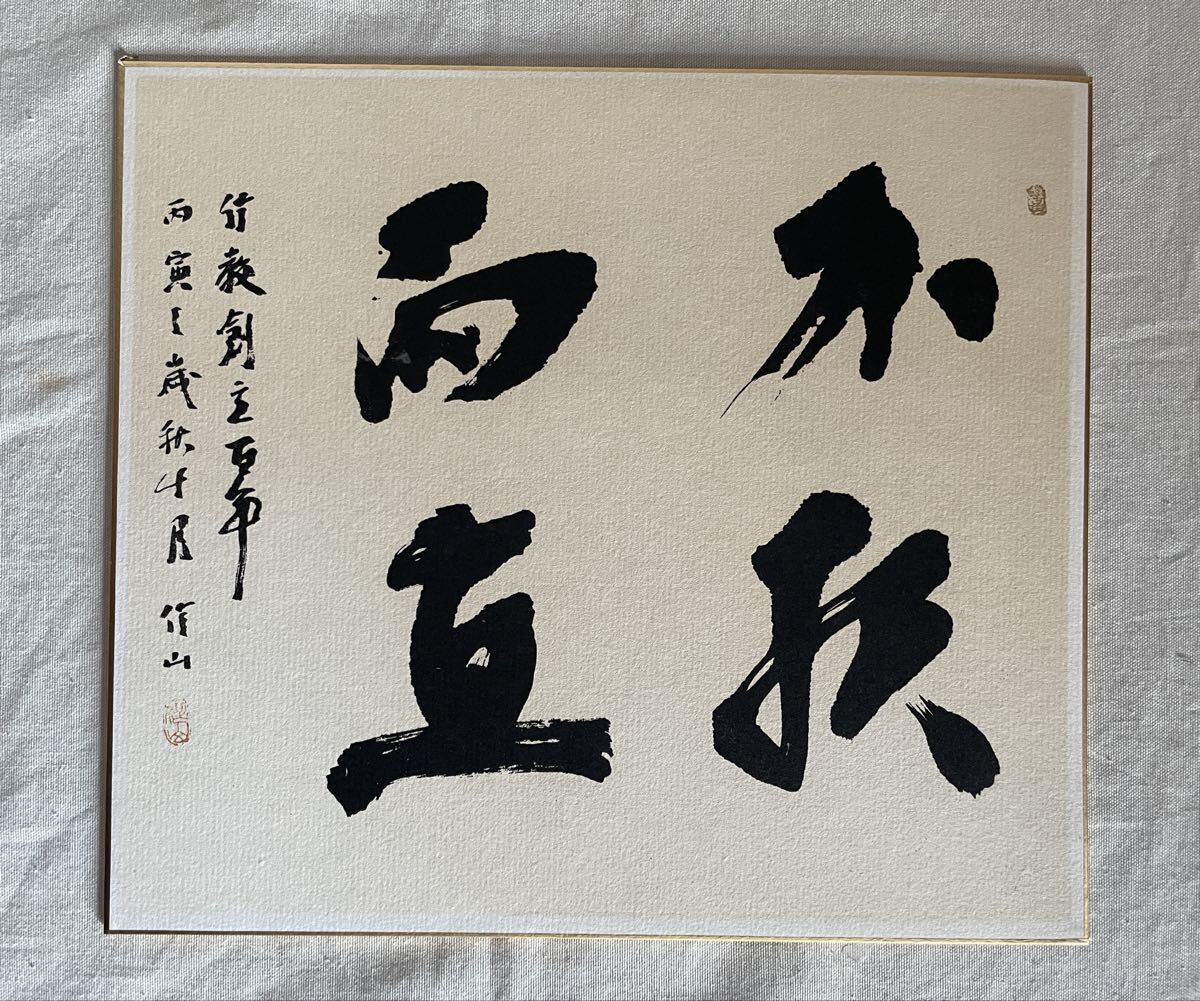 不扶
而直
信教創立百年
丙寅之歳秋十月 信山